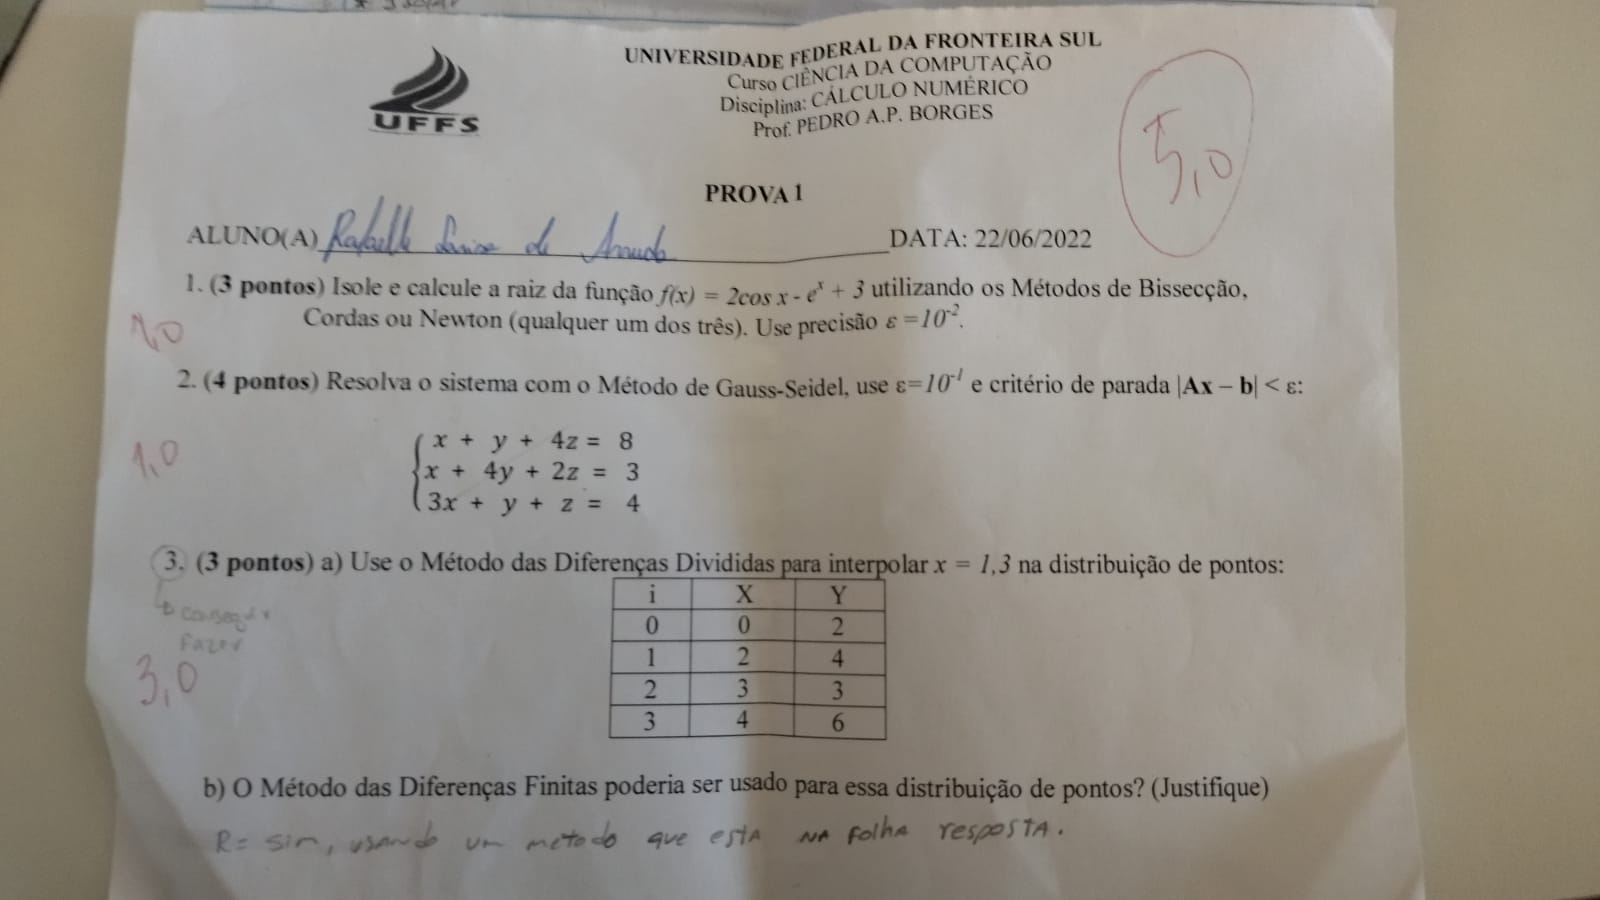 UFFS
UNIVERSIDADE FEDERAL DA FRONTEIRA SUL
Curso CIÊNCIA DA COMPUTAÇÃO
Disciplina: CÁLCULO NUMÉRICO
Prof. PEDRO A.P. BORGES
5,0
PROVA 1
ALUNO(A) Rafaelle de DATA: 22/06/2022
1. (3 pontos) Isole e calcule a raiz da função f(x) = 2cos x - eˣ + 3 utilizando os Métodos de Bissecção,
Cordas ou Newton (qualquer um dos três). Use precisão ε =10⁻².
1,0
2. (4 pontos) Resolva o sistema com o Método de Gauss-Seidel, use ε=10⁻¹ e critério de parada |Ax – b| < ε:
x + y + 4z = 8
1,0
x + 4y + 2z = 3
3x + y + z = 4
3. (3 pontos) a) Use o Método das Diferenças Divididas para interpolar x = 1,3 na distribuição de pontos:
i X Y
0 0 2
1 2 4
2 3 3
3 4 6
Fazer
3,0
b) O Método das Diferenças Finitas poderia ser usado para essa distribuição de pontos? (Justifique)
R= sim, usando um metodo que esta NA FOLHA RESPOSTA.